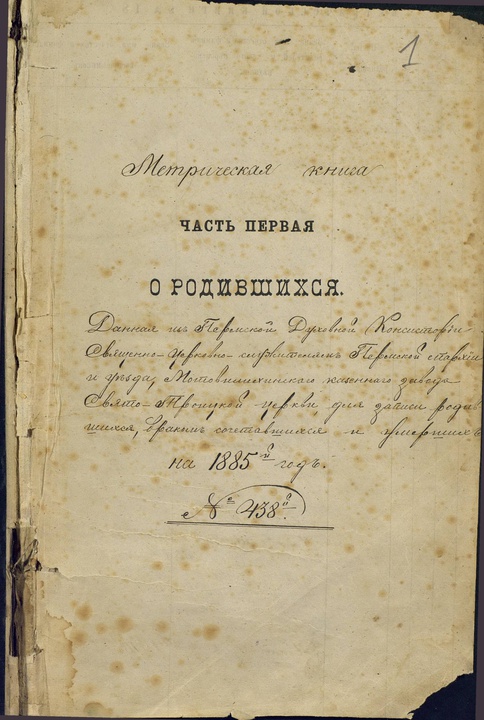 1
Метрическая книга
ЧАСТЬ ПЕРВАЯ
О РОДИВШИХСЯ.
Данная изъ Пермской Духовной Консисторіи
Священно-церковно-служителямъ Пермской епархіи
и уѣзда, Мотовилихинскаго казеннаго завода
Свято-Троицкой церкви для записи роди
шихся, бракомъ сочетавшихся и умершихъ
на 1885й годъ.
№ 438й.